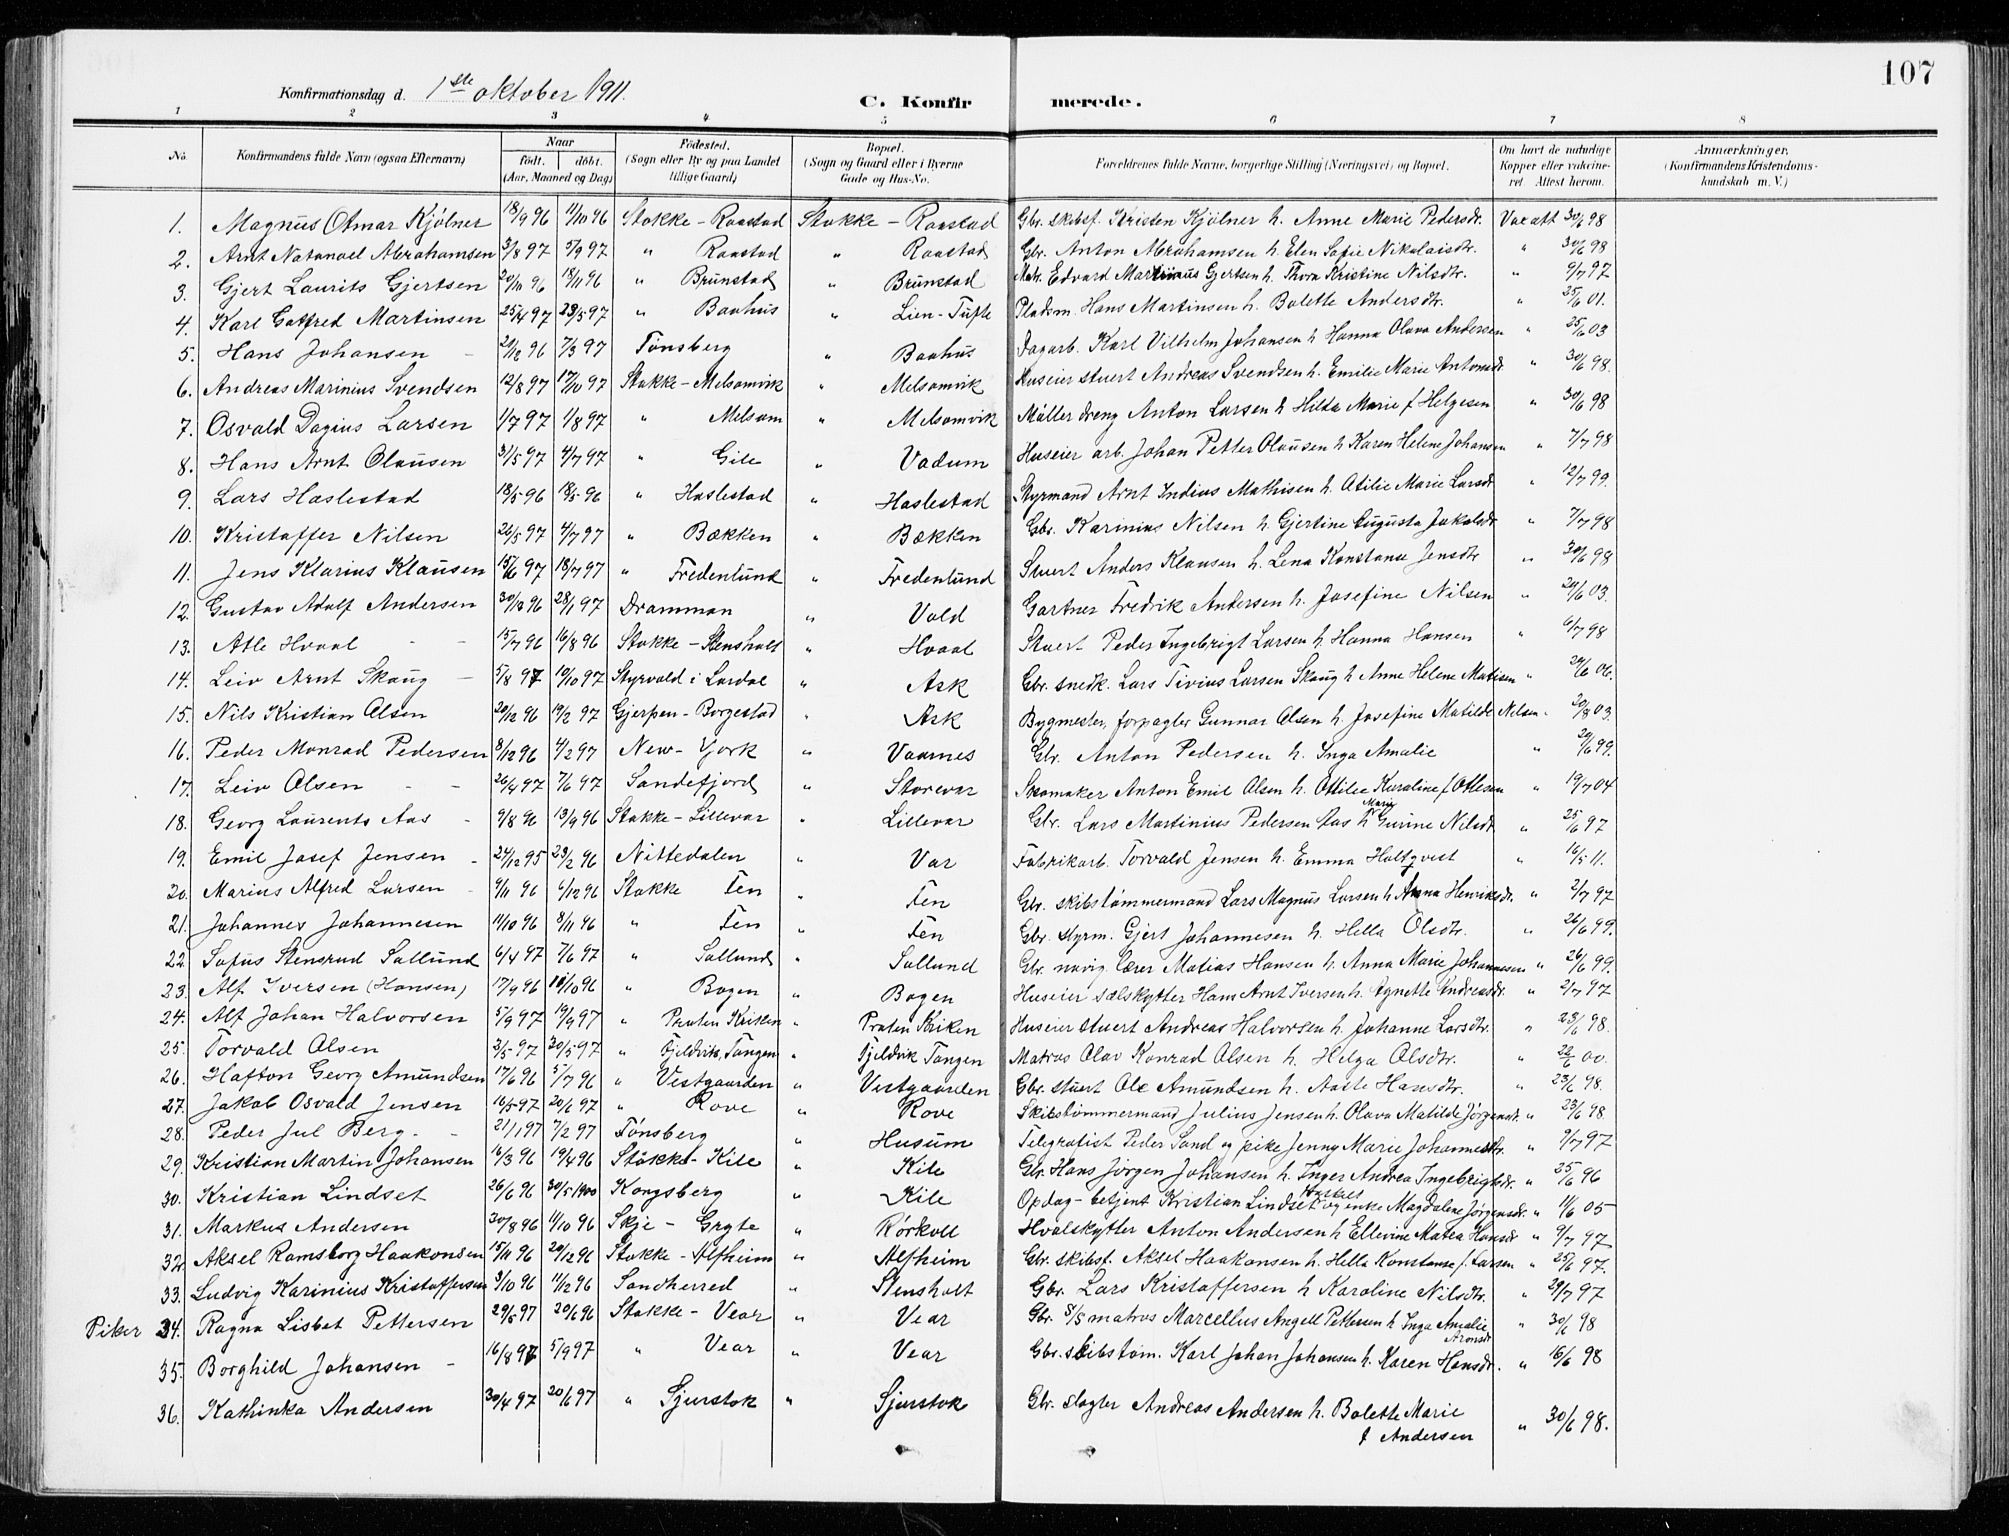 107
Konfirmationsdag d. 1ste oktober 1911.
C. Konfirmerede.
1 2 3 4 5 6 7 8
No. Konfirmandens fulde Navn (ogsaa Efternavn) Naar født. døbt. (Aar, Maaned og Dag) Fødested. (Sogn eller By og paa Landet tillige Gaard) Bopæl. (Sogn og Gaard eller i Byerne Gade og Hus-No. Forældrenes fulde Navne, borgerlige Stilling (Næringsvei) og Bopæl. Om havt de naturlige Kopper eller vakcineret. Attest herom. Anmærkninger, (Konfirmandens Kristendomskundskab m. V.)
1. Magnus Otmar Kjölner 18/9 96 11/10 96 Stokke - Raastad Stokke - Raastad Gbr. skibsf. Kristen Kjölner h. Anne Marie Pedersdr. Vax att 30/6 98
2. Arnt Natanael Abrahamsen 3/8 97 5/9 97 " Raastad " Raastad Gbr. Anton Abrahamsen h. Elen Sofie Nikolaisdtr. " 30/6 98
3. Gjert Laurits Gjertsen 20/10 96 18/11 96 " Brunstad " Brunstad Matr. Edvard Martinius Gjertsen h. Thora Kristine Nilsdtr. " 9/7 97
4. Karl Gotfred Martinsen 25/4 97 23/5 97 " Baahus " Lien-Tufte Pladsm. Hans Martinsen h. Bolette Andersdtr. " 25/6 01.
5. Hans Johansen - 20/12 96 7/3 97 Tønsberg " Baahus Dagarb. Karl Vilhelm Johansen h Hanna Olava Andersen " 25/6 03
6. Andreas Marinius Svendsen 12/8 97 17/10 97 Stokke - Melsomvik " Melsomvik Huseier stuert Andreas Svendsen h. Emilie Marie Antonsdr " 30/6 98.
7. Osvald Dagius Larsen 1/7 97 1/8 97 " Melsom " Melsomvik Möller dreng Anton Larsen h Hilda Marie f Helgesen " 30/6 98
8. Hans Arnt Olausen 31/5 97 4/7 97 " Gile " Vadum Huseier arb. Johan Petter Olausen h Karen Helene Johansen " 7/7 98
9. Lars Haslestad 18/3 96 18/5 96 " Haslestad " Haslestad Styrmand Arnt Indius Mathisen h. Otilie Marie Larsdr " 12/7 99.
10. Kristoffer Nilsen 26/5 97 4/7 97 " Bækken " Bækken Gbr. Karinius Nilsen h. Gjertine Augusta Jakobsdr " 7/7 98
11. Jens Klarius Klausen 15/6 97 18/7 97 " Fredenlund " Fredenlund Stuert Anders Klausen h. Lena Konstanse Jensdtr " 30/6 98
12. Gustav Adolf Andersen 30/10 96 28/1 97 Drammen " Vold Gartner Fredrik Andersen h. Josefine Nilsen " 20/6 03.
13. Atle Hvaal - - 15/7 96 16/8 96 Stokke - Stensholt " Hvaal Stuert Peder Ingebrigt Larsen h. Hanna Hansen " 6/7 98
14. Leiv Arnt Skaug - 5/8 97 10/10 97 Styrvold i Lardal " Ask Gbr. snedk. Lars Tivius Larsen Skaug h Anne Helene Matisen " 20/6 06.
15. Nils Kristian Olsen 20/12 96 19/2 97 Gjerpen - Borgestad " Ask Bygmester, forpagter Gunnar Olsen h. Josefine Matilde Nilsen " 20/8 03.
16. Peder Monrad Pedersen 8/12 96 4/2 97 New-York " Vaarnes Gbr. Anton Pedersen h. Inga Amalie " 20/6 99.
17. Leiv Olsen - - 26/4 97 7/6 97 Sandefjord " Storevar Skomaker Anton Emil Olsen h. Ottilie Karoline f. Ottesen " 19/7 04
18. Georg Laurents Aas - 9/8 96 13/9 96 Stokke - Lillevar " Lillevar Gbr. Lars Martinius Pedersen Aas h Marie Gurine Nilsdt " 25/6 97
19. Emil Josef Jensen - 24/12 95 23/2 96 Nittedalen " Var Fabrikarb. Torvald Jensen h. Emma Holtqvist " 16/5 11.
20. Marius Alfred Larsen - 9/11 96 6/12 96 Stokke Fen " Fen Gbr. skibstømmermand Lars Magnus Larsen h Anna Henriksdr. " 2/7 97
21. Johannes Johannesen 11/10 96 8/11 96 " Fen " Fen Gbr. styrm. Gjert Johannesen h. Hella Olsdtr. " 26/6 99.
22. Sofus Stensrud Sallund 6/4 97 7/6 97 " Sallund " Sallund Gbr. navig. lærer Matias Hansen h. Anna Marie Johannesen " 26/6 99.
23. Alf Iversen (Hansen) 17/9 96 18/10 96 " Bogen " Bogen Huseier sælskytter Hans Arnt Iversen h. Agnette Andreasdr. " 2/7 97
24. Alf Johan Halvorsen 5/9 97 19/9 97 " Præsten Kriken " Præsten Kriken Huseier stuert Andreas Halvorsen h. Johanne Larsdtr. " 23/6 98.
25. Torvald Olsen 3/5 97 30/5 97 " Fjeldvik, Tangen " Fjeldvik Tangen Matros Olav Konrad Olsen h. Helga Olsdtr. " 22/6 00.
26. Hafton Georg Amundsen 17/6 96 5/7 96 " Vestgaarden " Vestgaarden Gbr. stuert Ole Amundsen h. Aaste Hansdtr. " 23/6 98.
27. Jakob Osvald Jensen 16/5 97 20/6 97 " Rove " Rove Skibstømmermand Julius Jensen h. Olava Matilde Jörgensdr. " 23/6 98.
28. Peder Jul Berg. - 21/1 97 7/2 97 Tønsberg " Husum Telegrafist Peder Sand og pike Jenny Marie Johannesdtr. " 9/7 97
29. Kristian Martin Johansen 16/3 96 19/4 96 Stokke - Kile " Kile Gbr. Hans Jörgen Johansen h. Inger Andrea Ingebrigtsdr. " 25/6 96
30. Kristian Lindset 26/6 96 30/5 1900 Kongsberg " Kile Opdag-betjent Kristian Lindset og enke Magdalene Jörgensdr. " 11/6 05
31. Markus Andersen 30/8 96 11/10 96 Skje - Grgte " Rörkoll Hvalskytter Anton Andersen h Ellevine Matea Hansdr " 9/7 97
32. Aksel Ramsborg Haakonsen 15/11 96 20/12 96 Stokke - Alfheim " Alfheim Gbr. skibsf. Aksel Haakonsen h. Hella Konstanse f. Larsen " 25/6 97.
33. Ludvig Karinius Kristoffersen 3/10 96 11/12 96 Sandherred " Stensholt Gbr. Lars Kristoffersen h Karoline Nilsdtr. " 29/7 97
Piker 34. Ragna Lisbet Pettersen 29/5 97 20/6 96 Stokke - Vear " Vear Gbr. S/S matros Marcellus Angell Pettersen h Inga Amalie Aronsdr " 30/6 98
35. Borghild Johansen - 16/8 97 5/9 97 " Vear " Vear Gbr. skibstøm. Karl Johan Johansen h. Karen Hansdr. " 16/6 98
36. Kathinka Andersen 30/4 97 20/6 97 " Sjurstok " Sjurstok Gbr. slagter Andreas Andersen h. Bolette Marie f Andersen " 30/6 98.